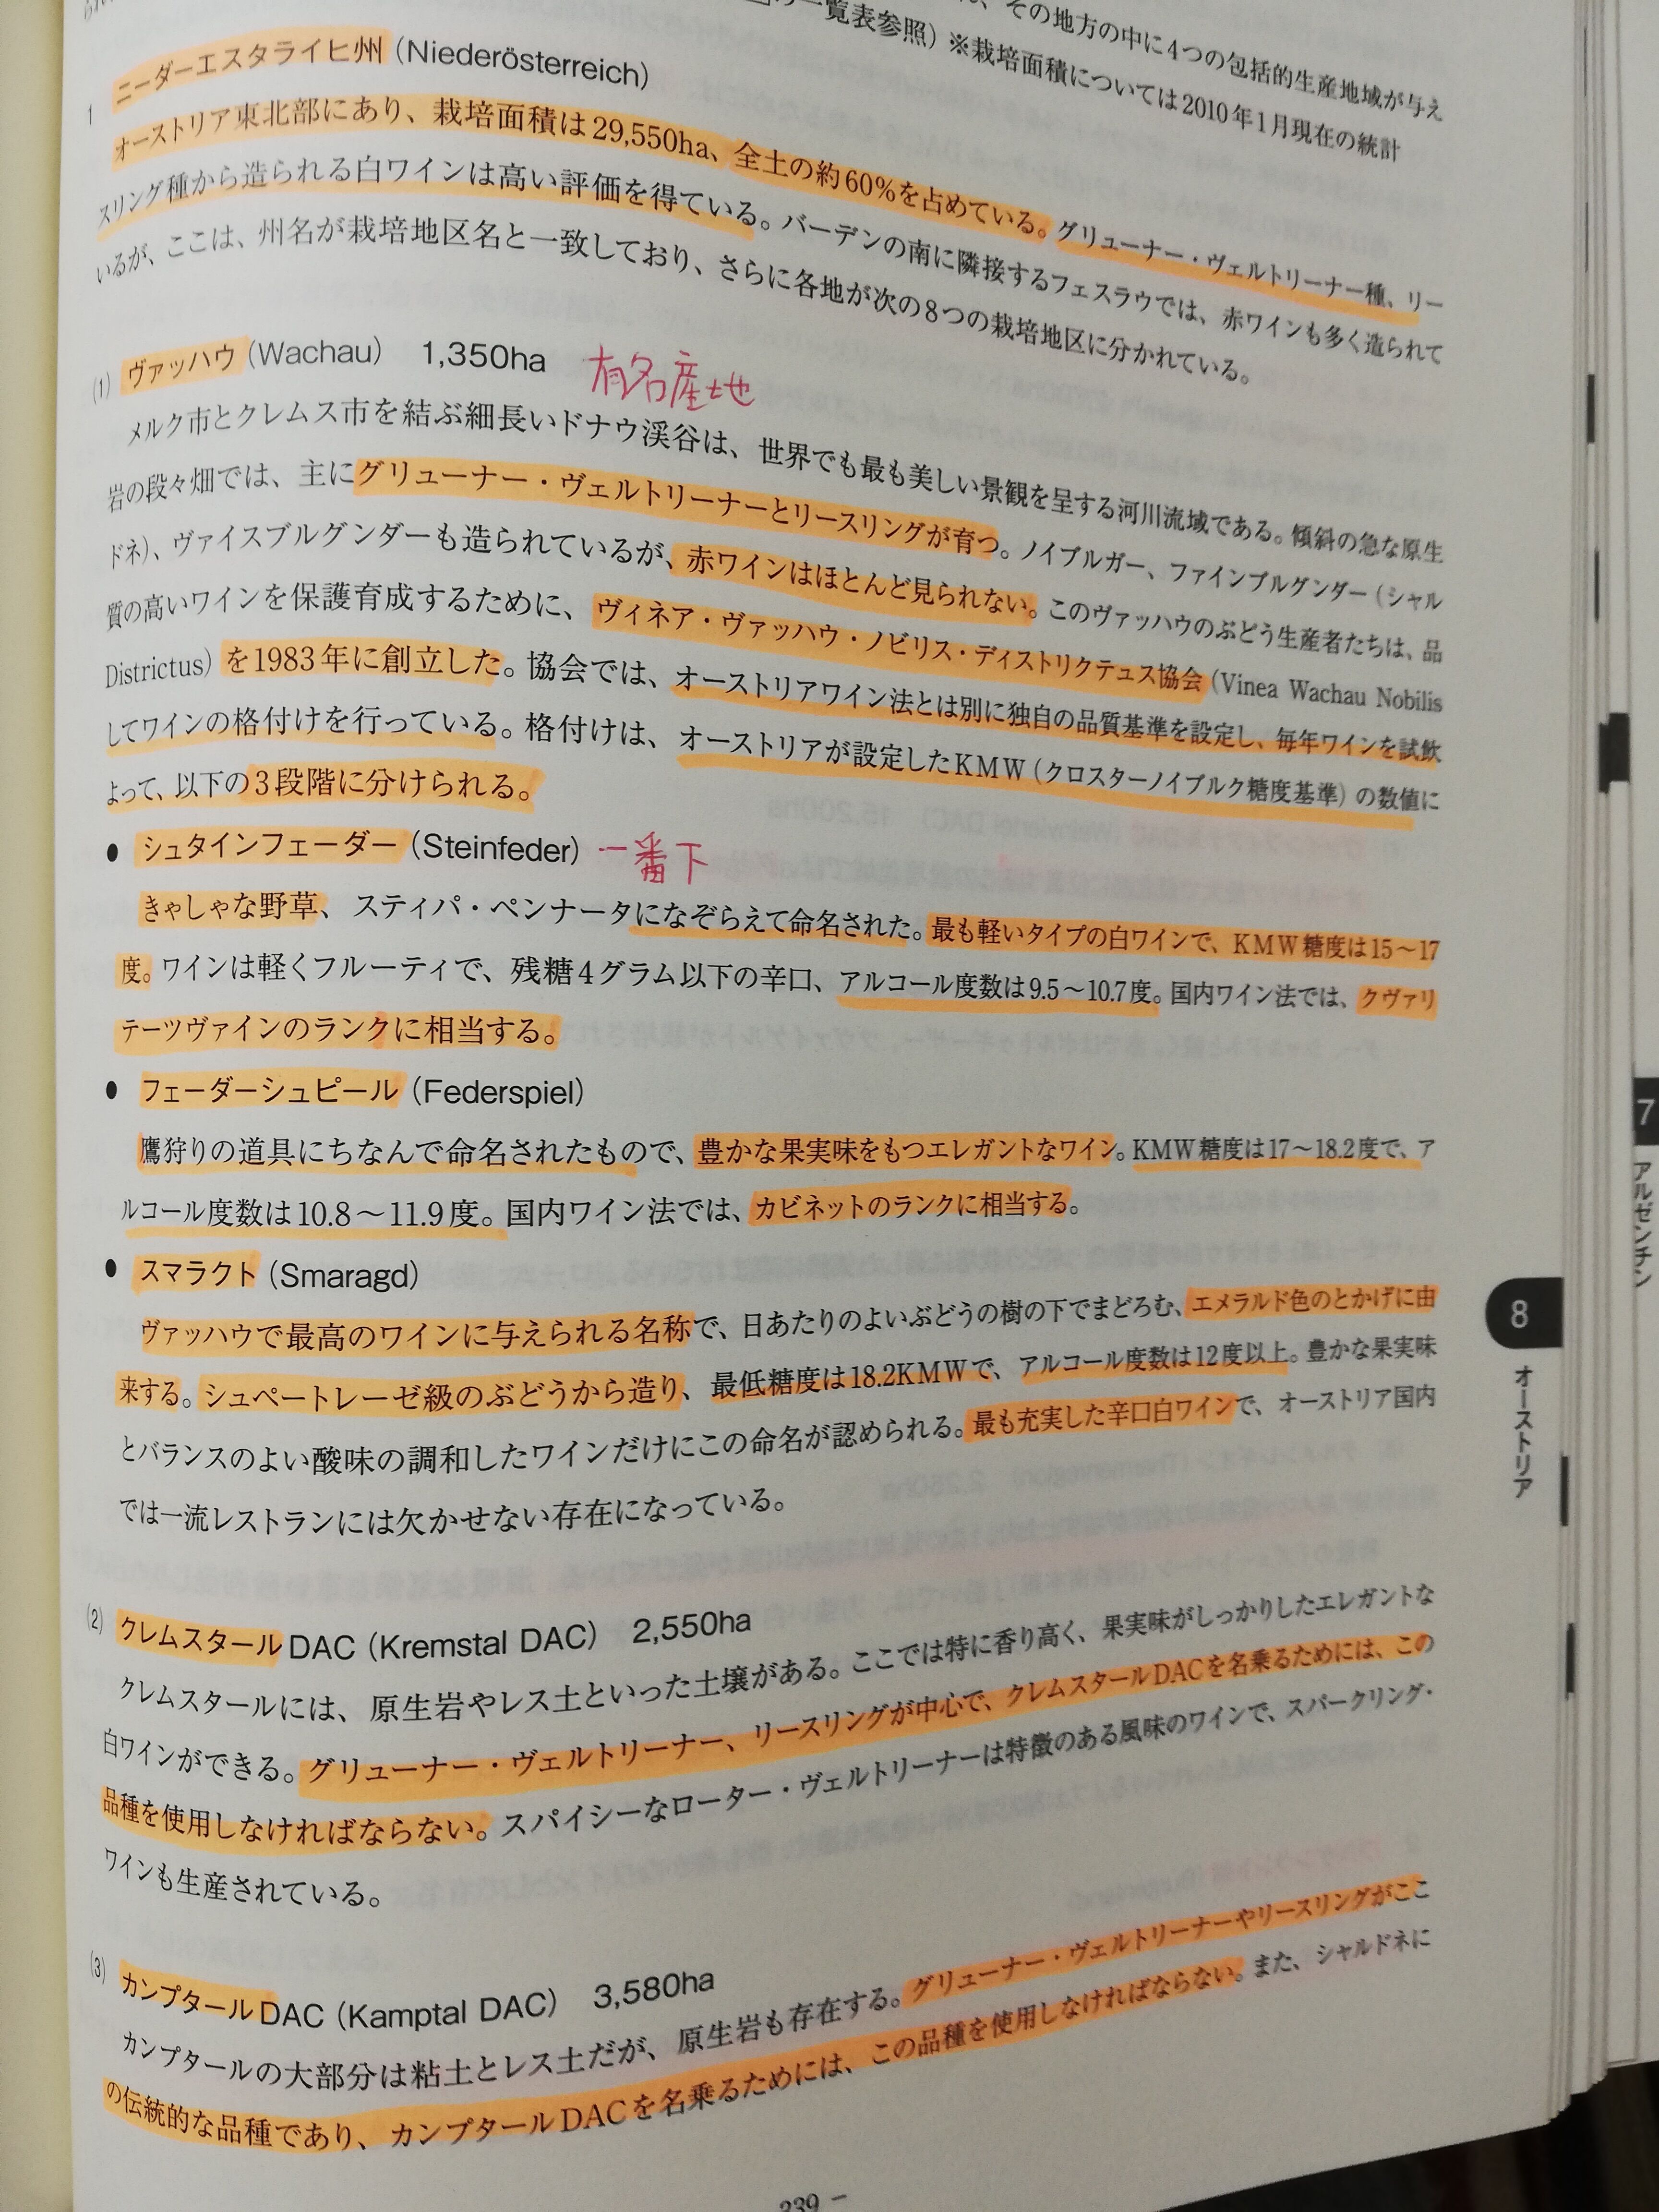 、その地方の中に4つの包括的生産地域が与え
の一覧表参照）※栽培面積については2010年1月現在の統計
1 ニーダーエスタライヒ州（Niederösterreich）
オーストリア東北部にあり、栽培面積は29,550ha、全土の約60%を占めている。グリューナー・ヴェルトリーナー種、リー
スリング種から造られる白ワインは高い評価を得ている。バーデンの南に隣接するフェスラウでは、赤ワインも多く造られて
いるが、ここは、州名が栽培地区名と一致しており、さらに各地が次の8つの栽培地区に分かれている。
(1) ヴァッハウ（Wachau） 1,350ha 有名産地
メルク市とクレムス市を結ぶ細長いドナウ渓谷は、世界でも最も美しい景観を呈する河川流域である。傾斜の急な原生
岩の段々畑では、主にグリューナー・ヴェルトリーナーとリースリングが育つ。ノイブルガー、ファインブルグンダー（シャル
ドネ）、ヴァイスブルグンダーも造られているが、赤ワインはほとんど見られない。このヴァッハウのぶどう生産者たちは、品
質の高いワインを保護育成するために、ヴィネア・ヴァッハウ・ノビリス・ディストリクテュス協会（Vinea Wachau Nobilis
Districtus）を1983年に創立した。協会では、オーストリアワイン法とは別に独自の品質基準を設定し、毎年ワインを試飲
してワインの格付けを行っている。格付けは、オーストリアが設定したKMW（クロスターノイブルク糖度基準）の数値に
よって、以下の3段階に分けられる。
● シュタインフェーダー（Steinfeder） 一番下
きゃしゃな野草、スティパ・ペンナータになぞらえて命名された。最も軽いタイプの白ワインで、KMW糖度は15～17
度。ワインは軽くフルーティで、残糖4グラム以下の辛口、アルコール度数は9.5～10.7度。国内ワイン法では、クヴァリ
テーツヴァインのランクに相当する。
● フェーダーシュピール（Federspiel）
鷹狩りの道具にちなんで命名されたもので、豊かな果実味をもつエレガントなワイン。KMW糖度は17～18.2度で、ア
ルコール度数は10.8～11.9度。国内ワイン法では、カビネットのランクに相当する。
● スマラクト（Smaragd）
ヴァッハウで最高のワインに与えられる名称で、日あたりのよいぶどうの樹の下でまどろむ、エメラルド色のとかげに由
来する。シュペートレーゼ級のぶどうから造り、最低糖度は18.2KMWで、アルコール度数は12度以上。豊かな果実味
とバランスのよい酸味の調和したワインだけにこの命名が認められる。最も充実した辛口白ワインで、オーストリア国内
では一流レストランには欠かせない存在になっている。
(2) クレムスタールDAC（Kremstal DAC） 2,550ha
クレムスタールには、原生岩やレス土といった土壌がある。ここでは特に香り高く、果実味がしっかりしたエレガントな
白ワインができる。グリューナー・ヴェルトリーナー、リースリングが中心で、クレムスタールDACを名乗るためには、この
品種を使用しなければならない。スパイシーなローター・ヴェルトリーナーは特徴のある風味のワインで、スパークリング・
ワインも生産されている。
(3) カンプタールDAC（Kamptal DAC） 3,580ha
カンプタールの大部分は粘土とレス土だが、原生岩も存在する。グリューナー・ヴェルトリーナーやリースリングがここ
の伝統的な品種であり、カンプタールDACを名乗るためには、この品種を使用しなければならない。また、シャルドネに
339 −
7
アルゼンチン
8
オーストリア